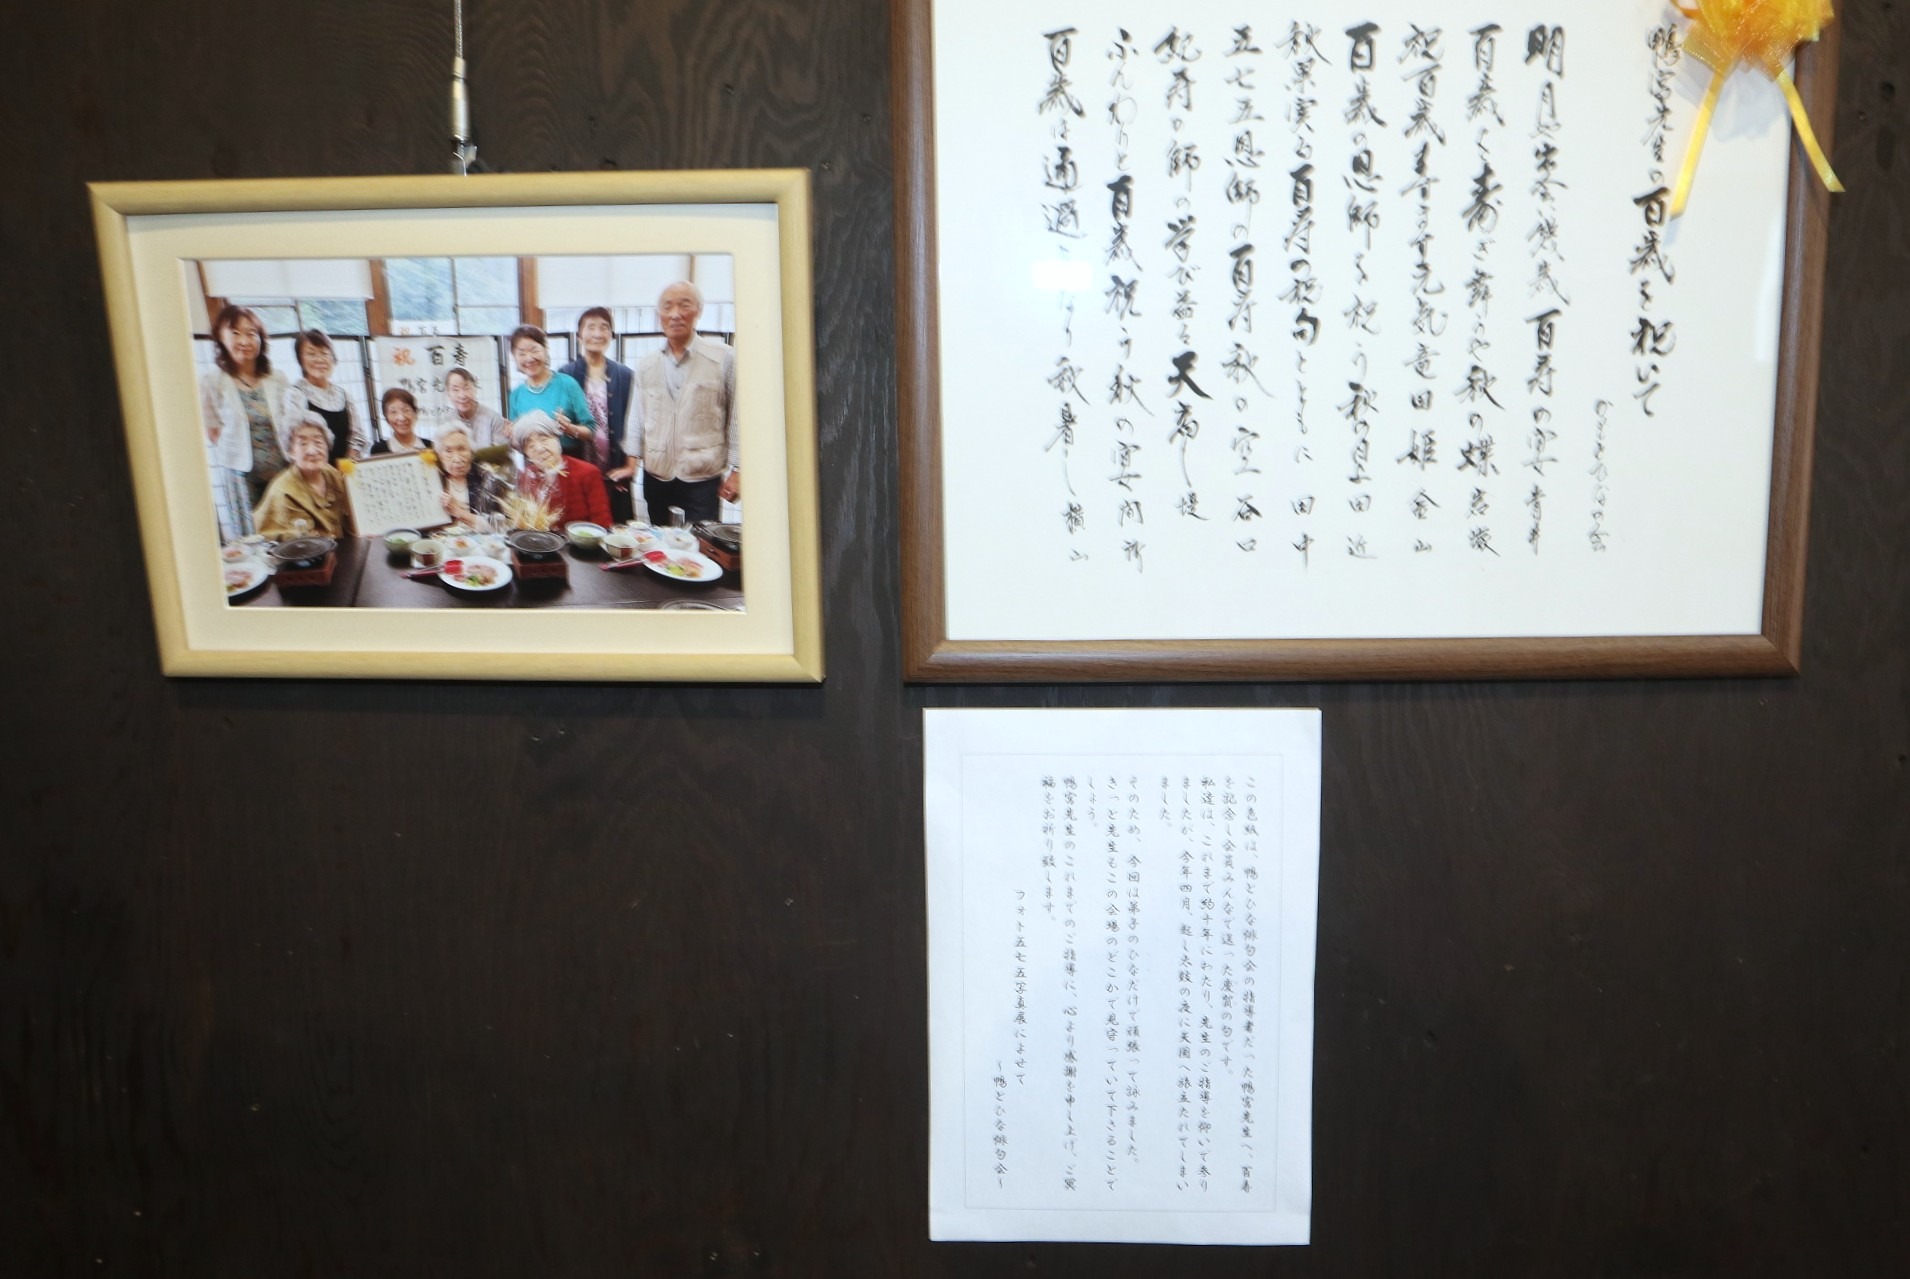 鴨宮先生の百歳を祝いて
かもとひなの会
百寿の宴 青井
百歳を寿ぎ舞うや秋の蝶 岩波
祝百歳ますます元気竜田姫 金山
百歳の恩師を祝う秋の星 田近
秋果実る百寿の祝句とともに 田中
五七五恩師の百寿秋の空 谷口
妃寿の師の学び益々天高し 堤
ふんわりと百歳祝う秋の宴 間所
百歳は通過 なり秋暑し 横山
祝 百寿
鴨宮先
この色紙は、鴨とひな俳句会の指導者だった鴨宮先生へ、百寿
を記念し会員みんなで送った慶賀の句です。
私達は、これまで約十年にわたり、先生のご指導を仰いで参り
ましたが、今年四月、越し天蚊の夜に天国へ旅立たれてしまい
ました。
そのため、今回は弟子のひなだけで頑張って詠みました。
きっと先生もこの会場のどこかで見守っていて下さることで
しょう。
鴨宮先生のこれまでのご指導に、心より感謝を申し上げ、ご冥
福をお祈り致します。
フォト五七五写真展によせて
～鴨とひな俳句会～